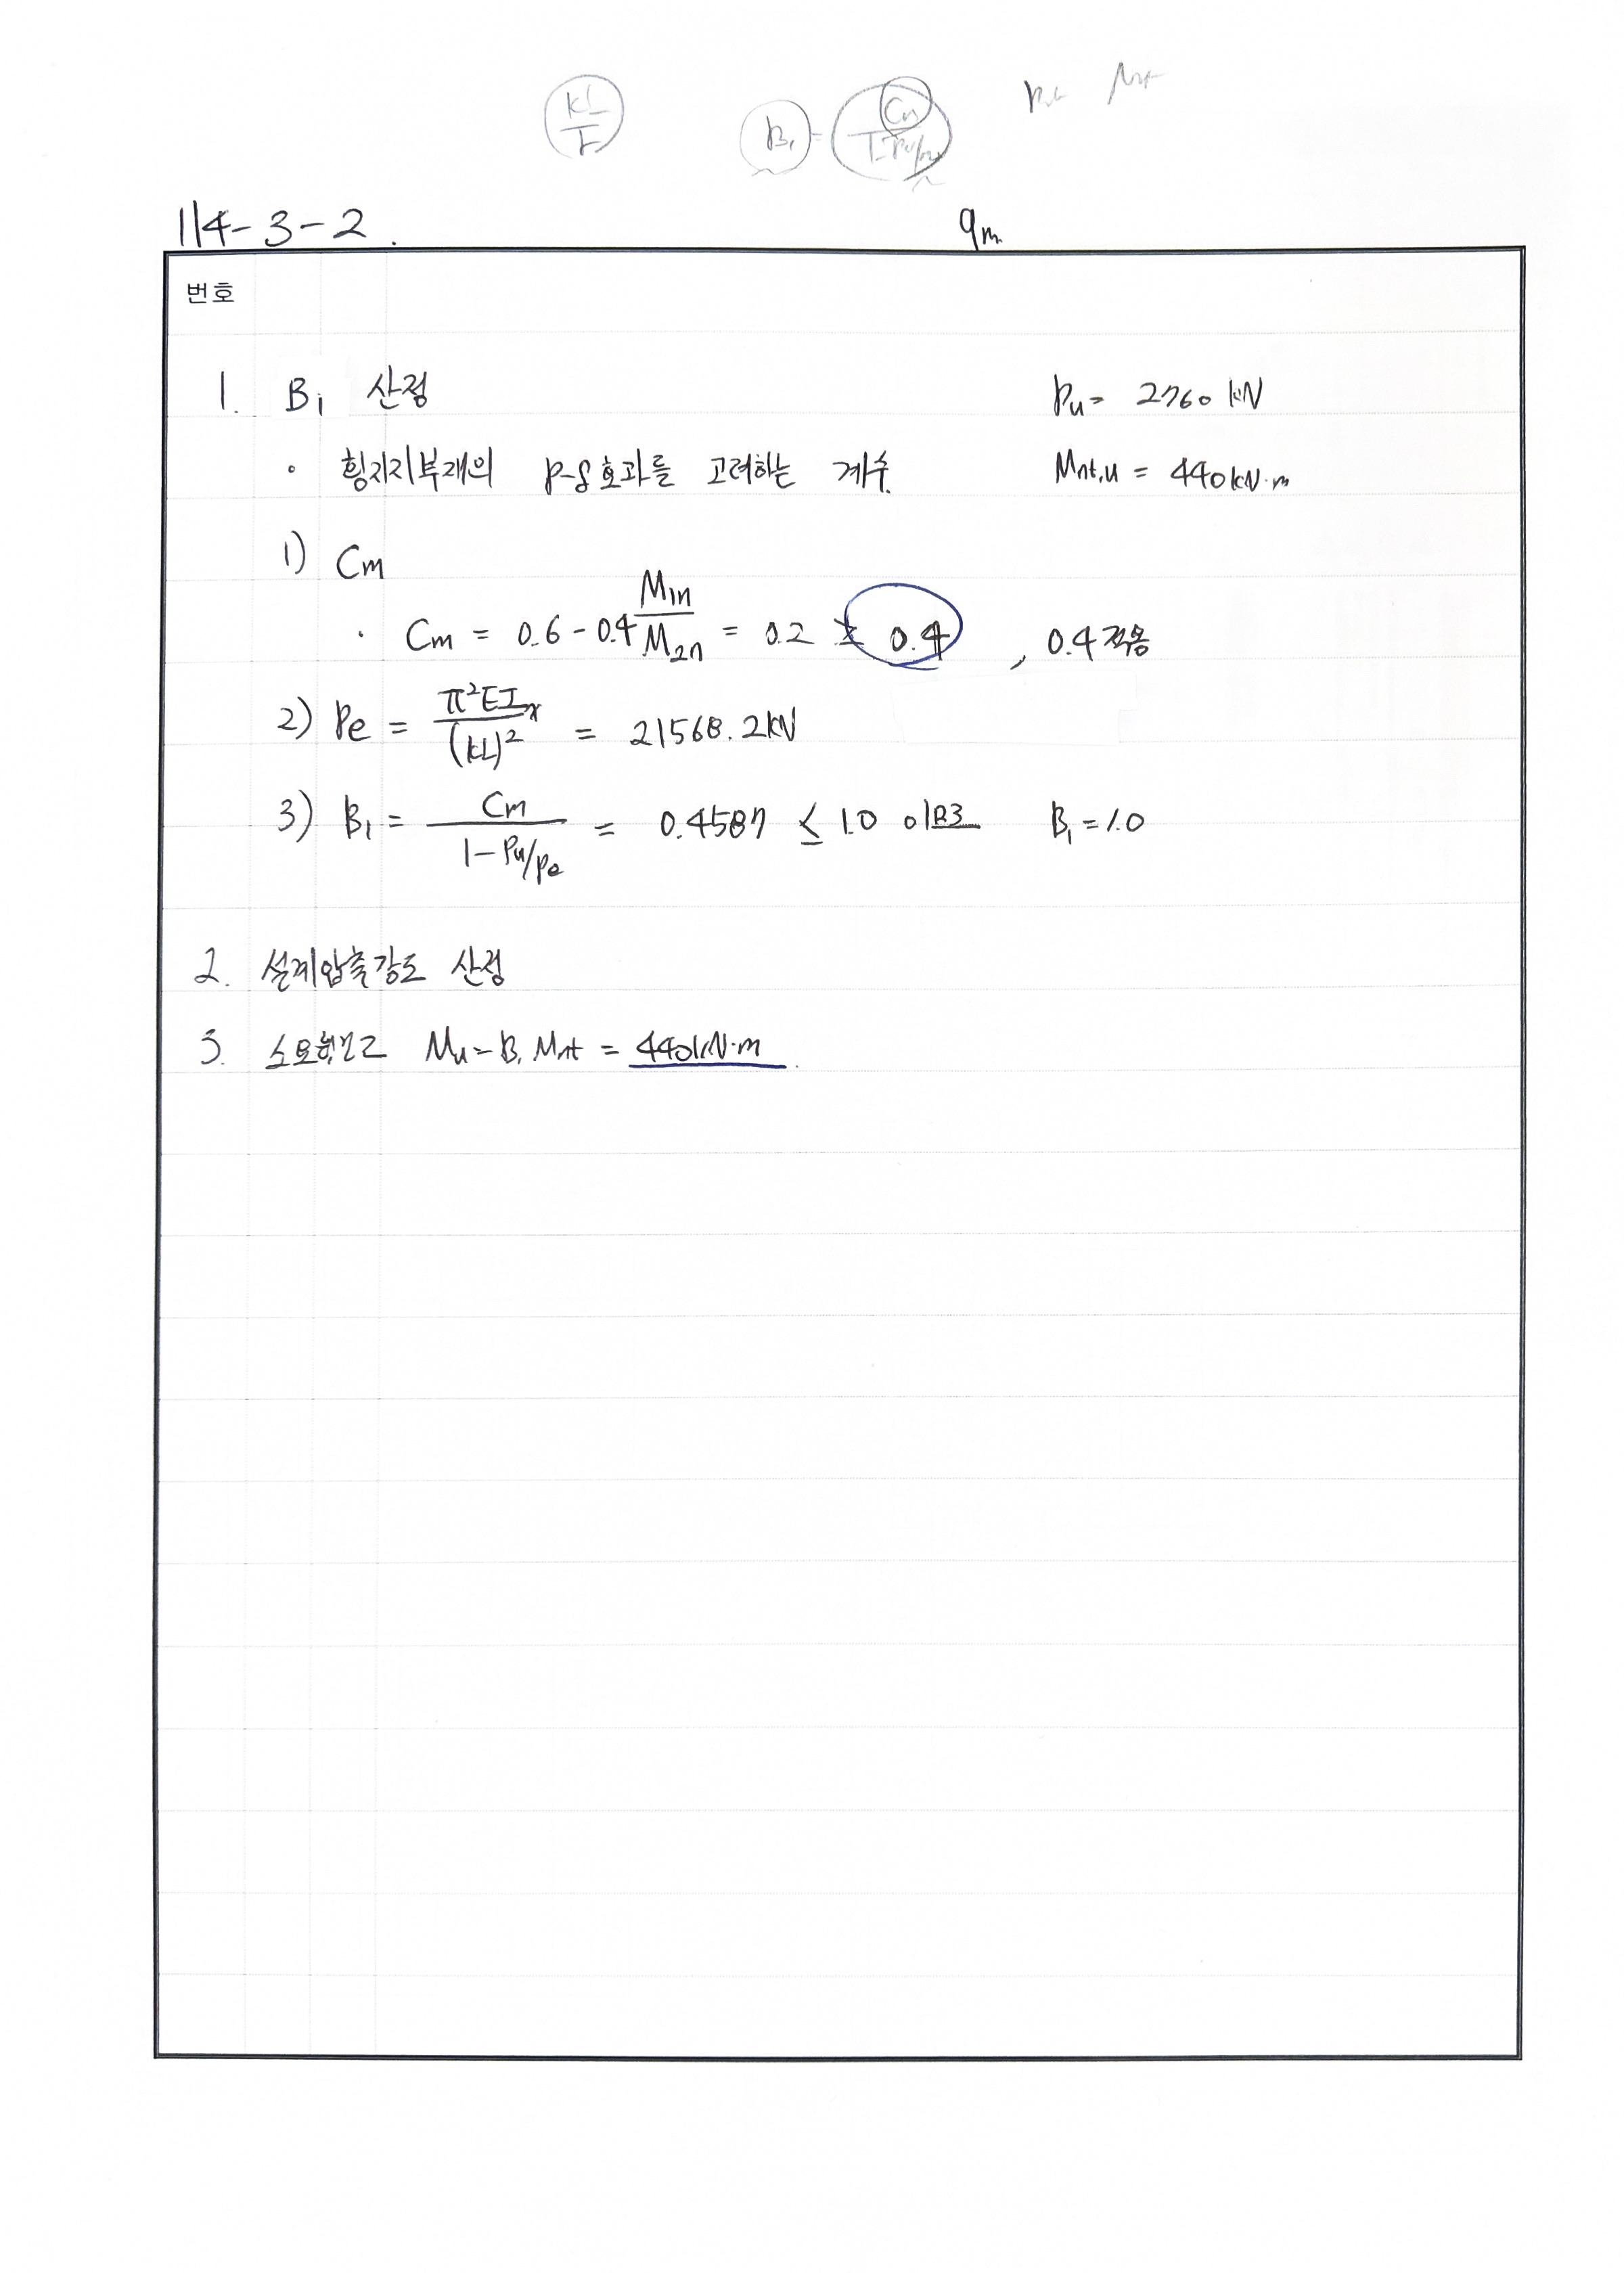 kl/r B₁ = Cm/1-Pu/Pe Pu Mnt
114-3-2. 9m
번호
1. B₁ 산정 Pu = 2760 kN
• 횡지지부재의 P-δ효과를 고려하는 계수. Mnt,u = 440kN·m
1) Cm
· Cm = 0.6 - 0.4 M1n/M2n = 0.2 ≱ 0.4 , 0.4 적용
2) Pe = π²EIx/(KL)² = 21568.2kN
3) B₁ = Cm/1-Pu/Pe = 0.4587 ≤ 1.0 이므로 B₁ = 1.0
2. 설계압축강도 산정
3. 소요휨강도 Mu = B₁ Mnt = 440kN·m.